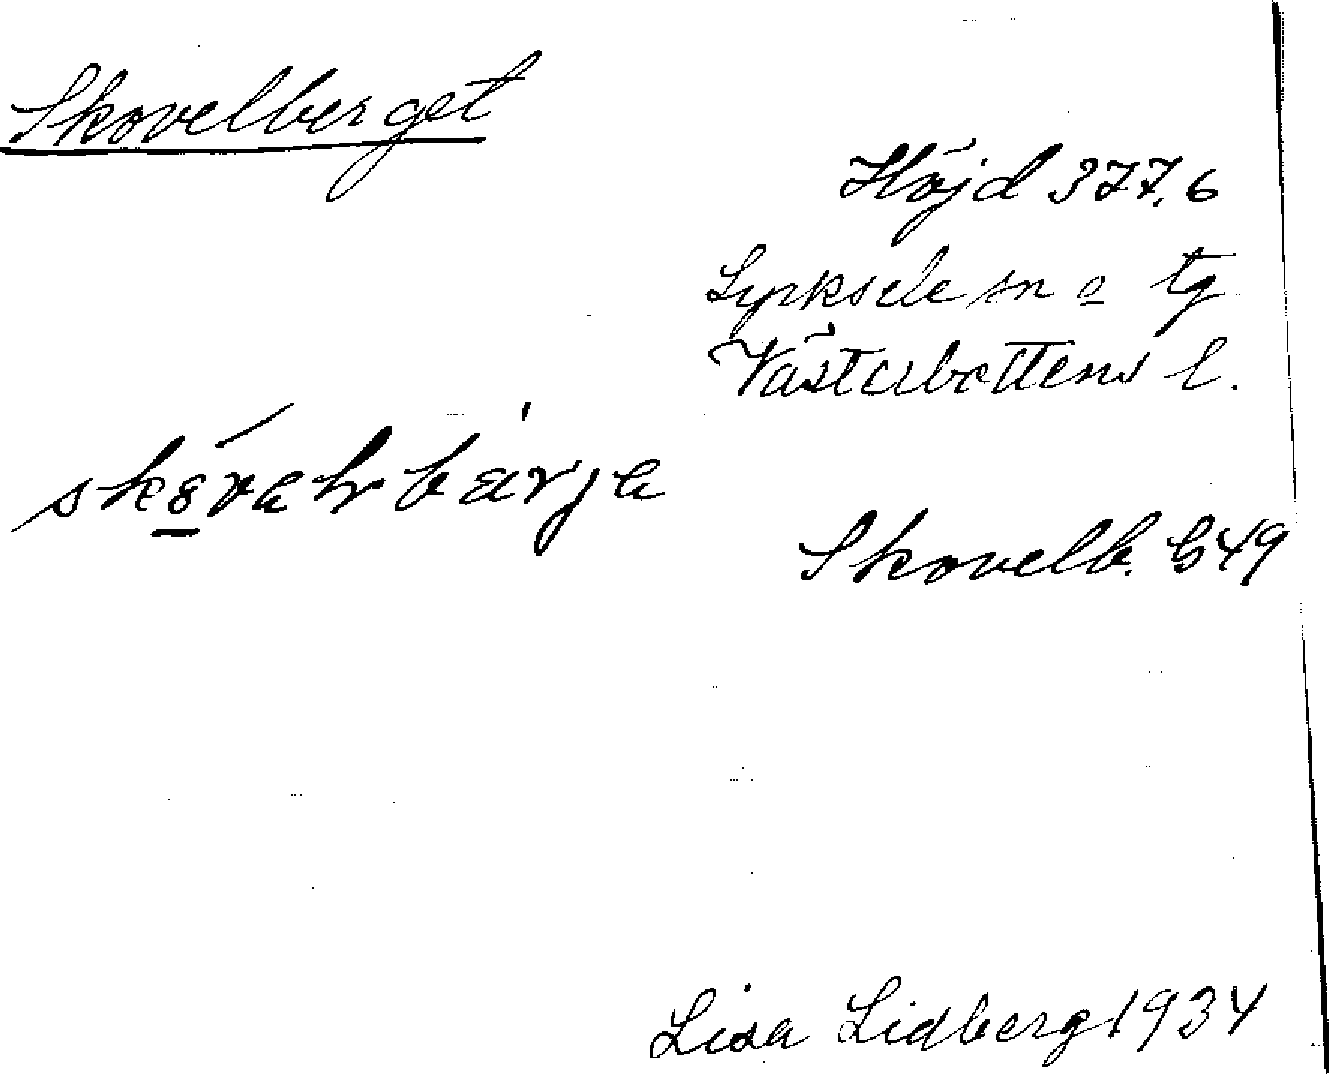 Skovelberget
Höjd 377,6
Lycksele sn o tg
Västerbottens l.
Skovelb. G49
Lisa Lidberg 1934